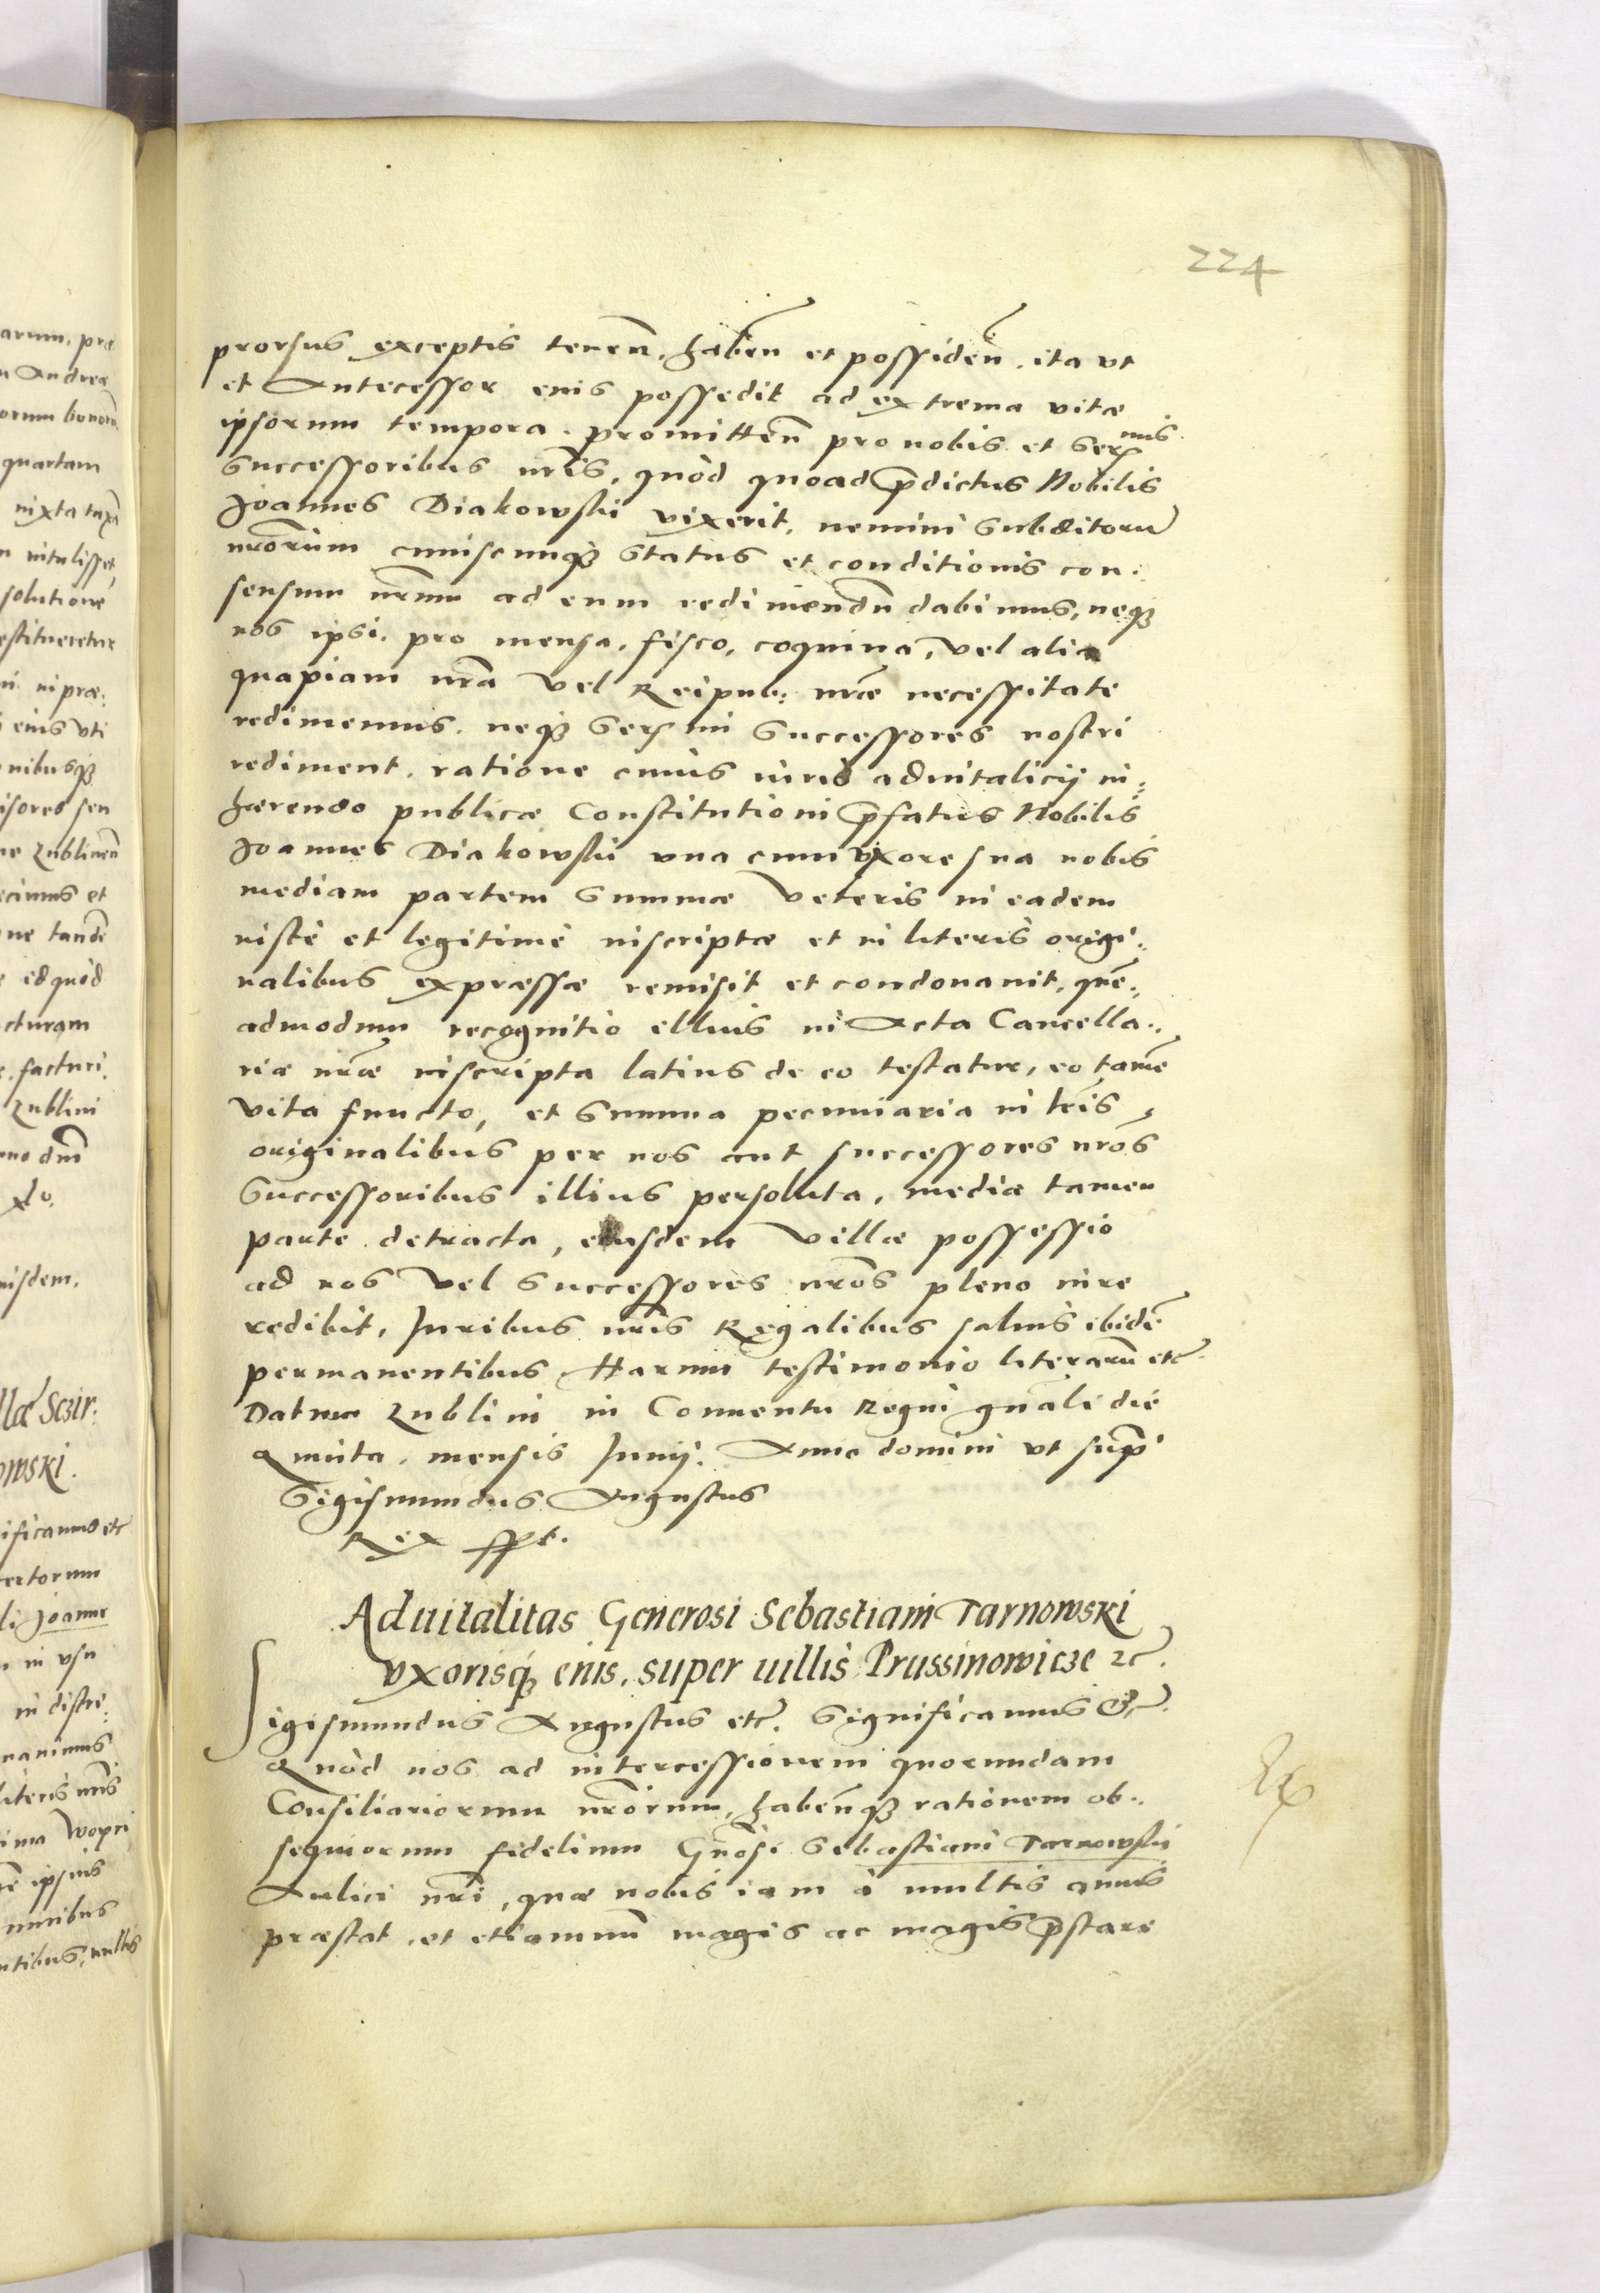 224
prorsus exceptis tenen̄. haben̄ et possiden̄. ita vt
et Antecessor eius possedit ad extrema vitæ
ipsorum tempora. promitten̄ pro nobis et Ser^mis
Successoribus nr̄is, quòd quoad p̄dictus Nobilis
Joannes Diakowski vixerit, nemini Subditorū
nr̄orum cuiuscunq₃ Status et conditionis con-
sensum nr̄um ad eum redimendū dabimus, neq₃
nos ipsi. pro mensa, fisco, coquina, vel alia
quapiam nr̄a vel Reipub: nr̄æ necessitate
redimemus. neq₃ Ser^mi Successores nostri
rediment. ratione cuius iuris aduitalicij in-
hærendo publicæ Constitutioni p̄fatus Nobilis
Joannes Diakowski vna cum vxore sua nobis
mediam partem Summæ Veteris in eadem
iustè et legitimè inscriptæ et in literis origi-
nalibus expressæ remisit et condonauit, quē-
admodum recognitio illius in Acta Cancella-
riæ nr̄æ inscripta latius de eo testatur, eo tamē
vita functo, et Summa pecuniaria in lr̄is
originalibus per nos aut successores nr̄os
Successoribus illius persoluta, mediæ tamen
parte detracta, eiusdem Villæ possessio
ad nos vel Successores nr̄os pleno iure
redibit, Juribus nr̄is Regalibus saluis ibidē
permanentibus Harum testimonio literarū etc.
Datum Lublini in Conuentu Regni gn̄ali die
Quinta. mensis Junij. Anno domini vt sup̄
Sigismundus Augustus
Rex sspt.
Aduitalitas Generosi Sebastiani Tarnowski
vxorisq₃ eius, super uillis Prussinowicze etc.
Sigismundus Augustus etc. Significamus &c.
Quòd nos ad intercessionem quorundam
Consiliariorum nr̄orum, haben̄q₃ rationem ob-
sequiorum fidelium Gn̄osi Sebastiani Tarnowski
Aulici nr̄i, quæ nobis iam à multis annis
præstat, et etiamnū magis ac magis p̄stare